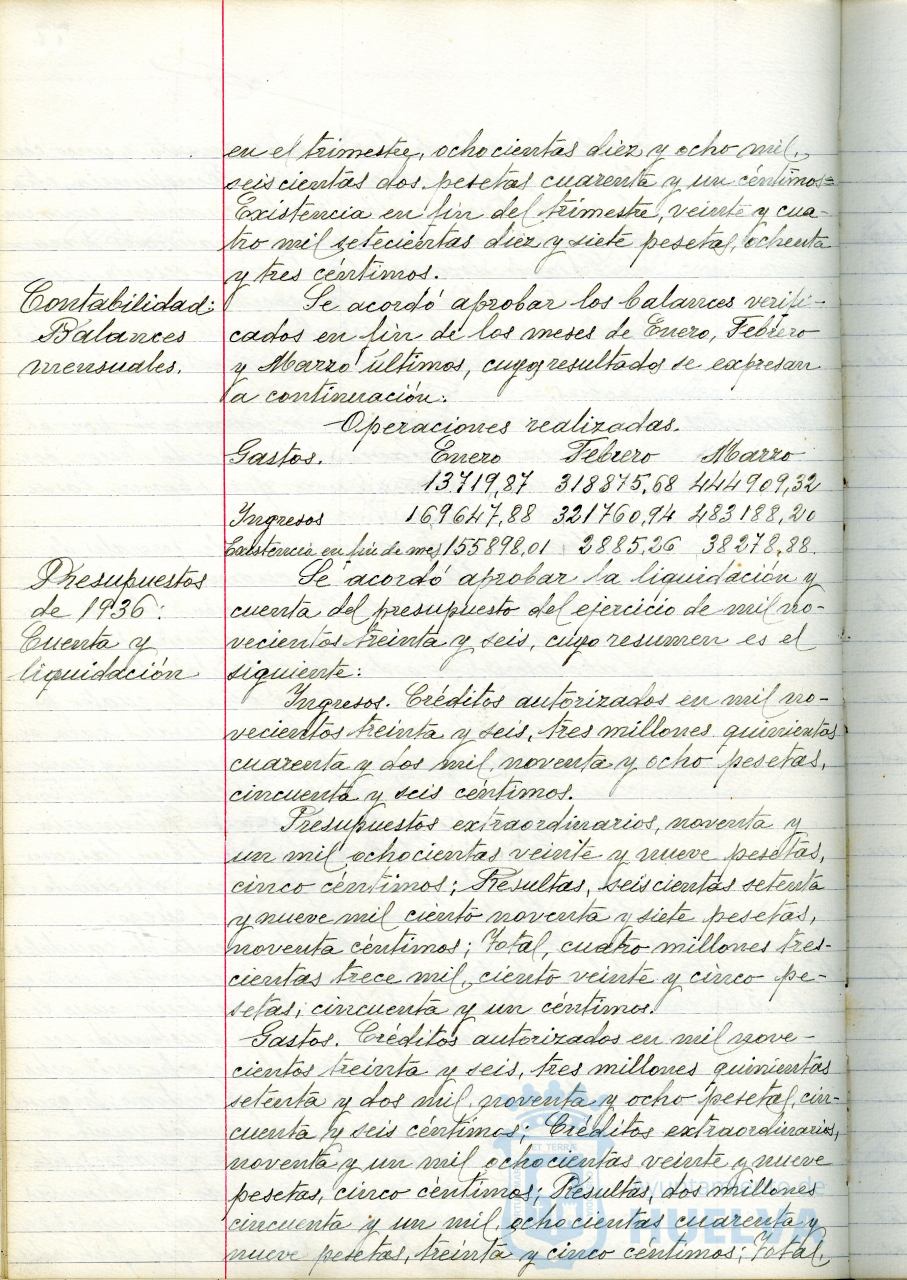 en el trimestre, ochocientas diez y ocho mil,
seiscientas dos pesetas cuarenta y un céntimos=
Existencia en fin del trimestre, veinte y cua-
tro mil setecientas diez y siete pesetas, ochenta
y tres céntimos.
Contabilidad:
Balances
mensuales.
Se acordó aprobar los balances verifi-
cados en fin de los meses de Enero, Febrero
y Marzo últimos, cuyos resultados se expresan
a continuación:
Operaciones realizadas.
Gastos. Enero Febrero Marzo
13719,87 318875,68 444909,32
Ingresos 169647,88 321760,94 483188,20
Existencia en fin de mes 155898,01 2885,26 38278,88.
Presupuestos
de 1936:
Cuenta y
liquidación
Se acordó aprobar la liquidación y
cuenta del presupuesto del ejercicio de mil no-
vecientos treinta y seis, cuyo resumen es el
siguiente:
Ingresos. Créditos autorizados en mil no-
vecientos treinta y seis, tres millones quinientas
cuarenta y dos mil, noventa y ocho pesetas,
cincuenta y seis céntimos.
Presupuestos extraordinarios, noventa y
un mil ochocientas veinte y nueve pesetas,
cinco céntimos; Resultas, seiscientas setenta
y nueve mil ciento noventa y siete pesetas,
noventa céntimos; Total, cuatro millones tres-
cientas trece mil, ciento veinte y cinco pe-
setas, cincuenta y un céntimos.
Gastos. Créditos autorizados en mil nove-
cientos treinta y seis, tres millones quinientas
setenta y dos mil, noventa y ocho pesetas, cin-
cuenta y seis céntimos; Créditos extraordinarios,
noventa y un mil ochocientas veinte y nueve
pesetas, cinco céntimos; Resultas, dos millones
cincuenta y un mil ochocientas cuarenta y
nueve pesetas, treinta y cinco céntimos; Total,
ET TERRAE
Ayuntamiento de
HUELVA